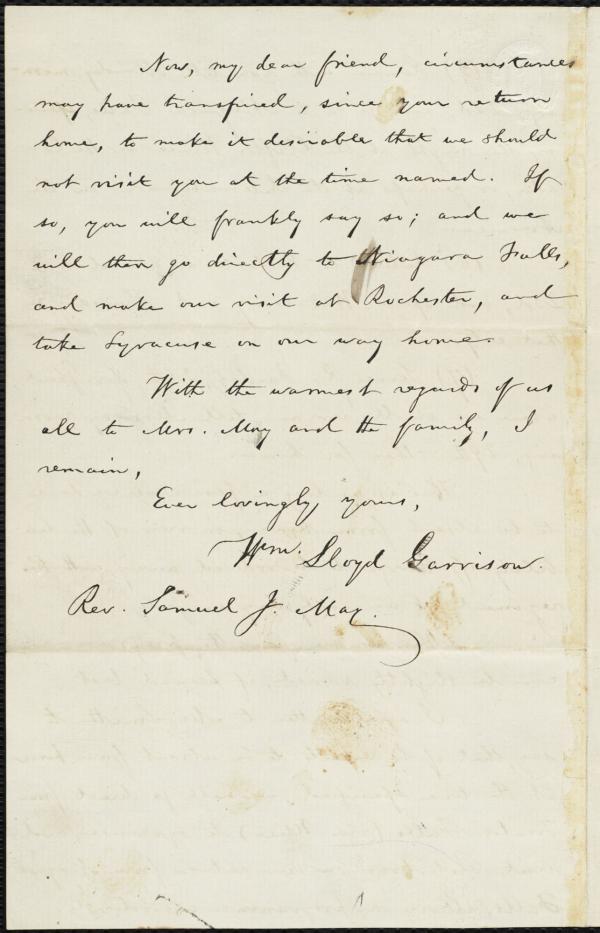 Now, my dear friend, circumstances
may have transpired, since your return
home, to make it desirable that we should
not visit you at the time named. If
so, you will frankly say so; and we
will then go directly to Niagara Falls,
and make our visit at Rochester, and
take Syracuse on our way home.
With the warmest regards of us
all to Mrs. May and the family, I
remain,
Ever lovingly yours,
Wm. Lloyd Garrison.
Rev. Samuel J. May.